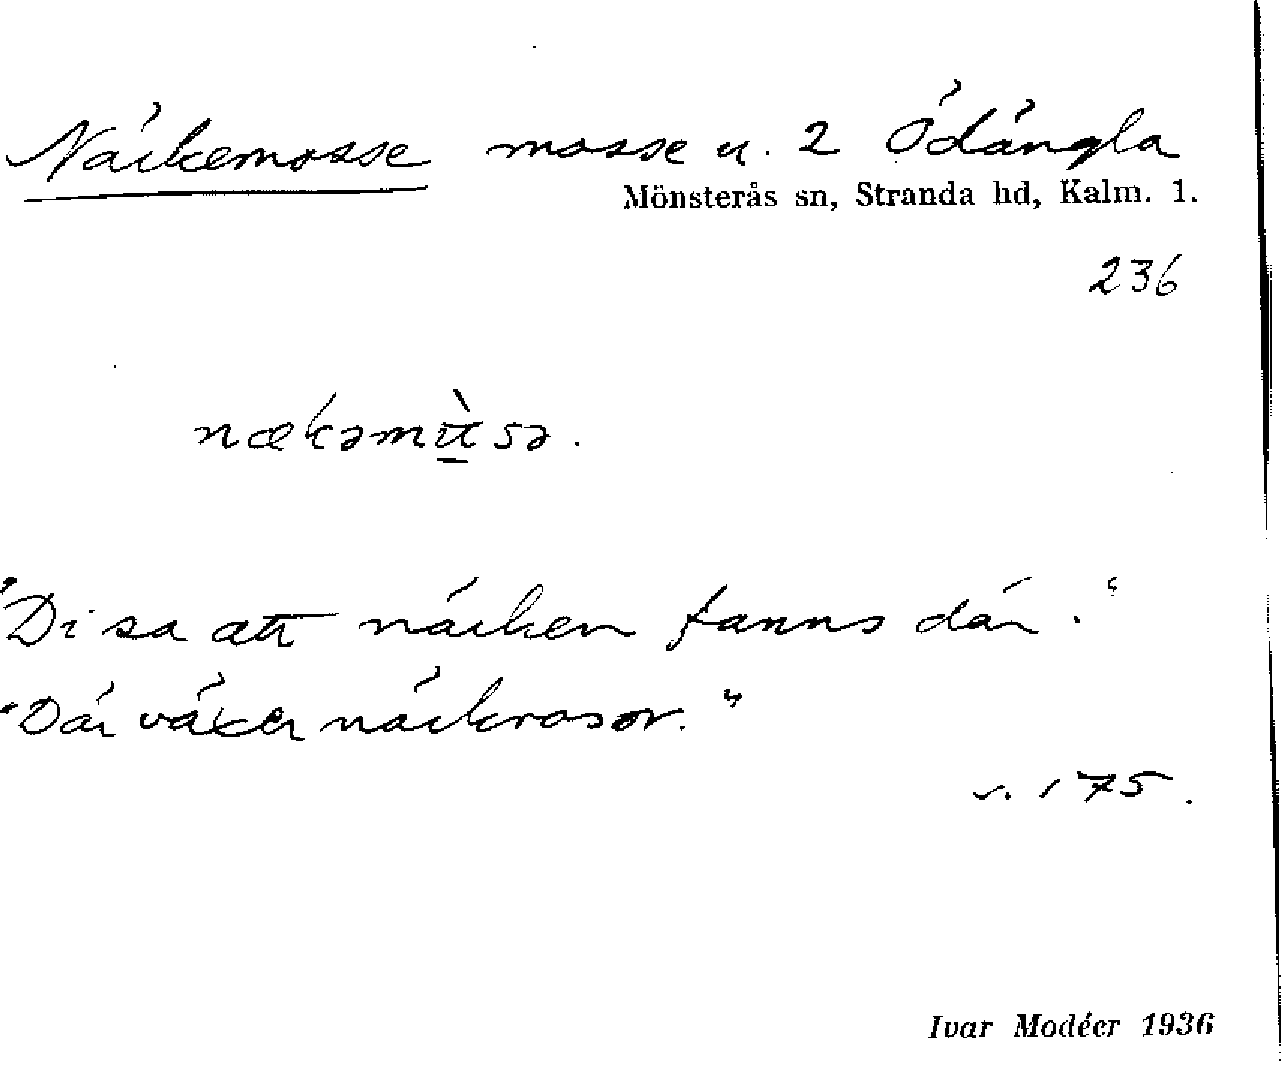 Näckemosse mosse u. 2 Ödängla
Mönsterås sn, Stranda hd, Kalm. l.
236
"Di sa att näcken fanns där."
"Där växer näckrosor."
s. 175.
Ivar Modéer 1936